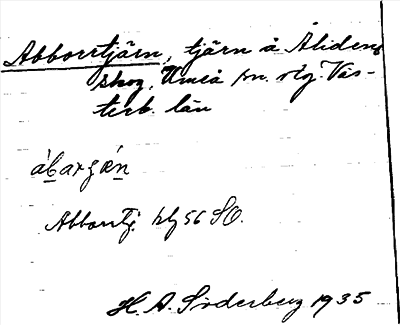 Abborrtjärn, tjärn å Ålidens
skog, Umeå sn. slg. Väs-
terb. län
Abborrtj. blg 56 SO.
H. A. Söderberg 1935